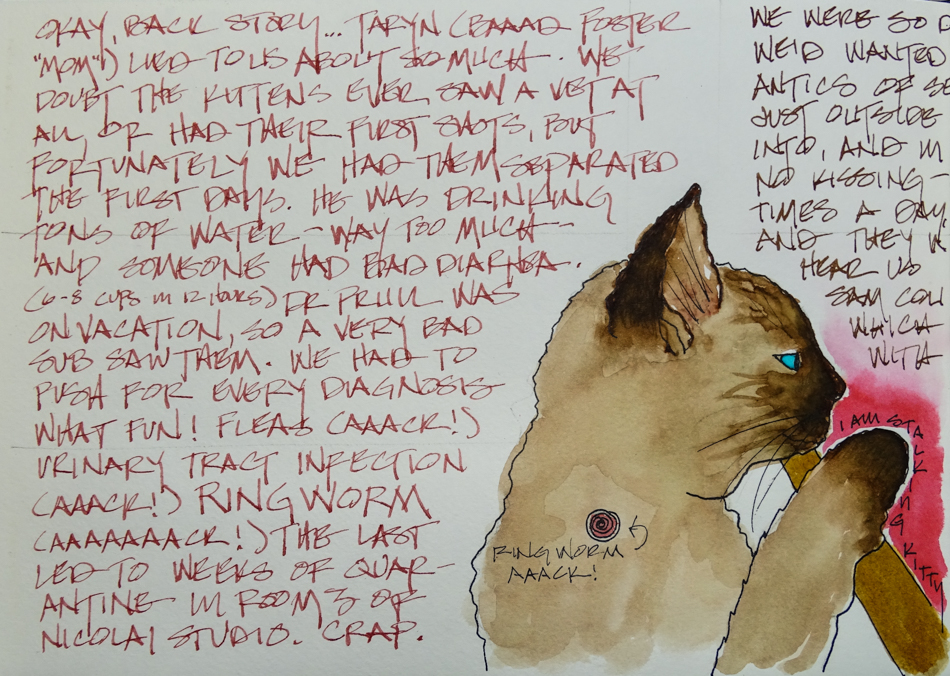 OKAY, BACK STORY... TARYN (BAAAD FOSTER
"MOM") LIED TO US ABOUT SO MUCH. WE
DOUBT THE KITTENS EVER SAW A VET AT
ALL, OR HAD THEIR FIRST SHOTS, BUT
FORTUNATELY WE HAD THEM SEPARATED
THE FIRST DAYS. HE WAS DRINKING
TONS OF WATER - WAY TOO MUCH -
AND SOMEONE HAD BAD DIARHEA.
(6-8 CUPS IN 12 HOURS) DR PRUUL WAS
ON VACATION, SO A VERY BAD
SUB SAW THEM. WE HAD TO
PUSH FOR EVERY DIAGNOSIS
WHAT FUN! FLEAS (AAACK!)
URINARY TRACT INFECTION
(AAACK!) RINGWORM
(AAAAAAACK!) THE LAST
LED TO WEEKS OF QUAR-
ANTINE IN ROOM 3 OF
NICOLAI STUDIO. CRAP.
RINGWORM
AAACK!
WE WERE SO
WE'D WANTED
ANTICS OF
JUST OUTSIDE
INTO, AND
NO KISSING -
TIMES A DAY
AND THEY
HEAR US
SAM
WHICH
WITH
I AM STALKING KITTY